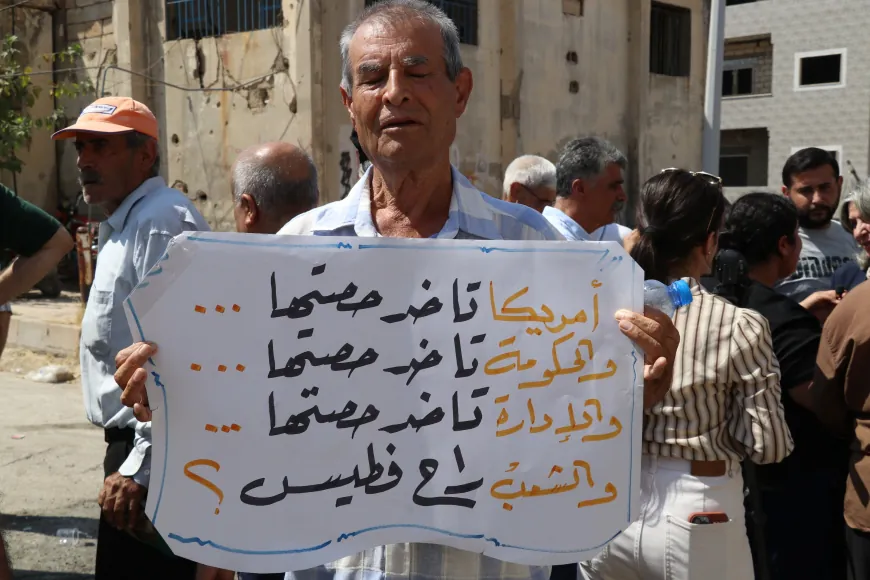 أمريكا تاخد حصتها ...
والحكومة تاخد حصتها ...
والإدارة تاخد حصتها ...
والشعب راح فطيس ؟